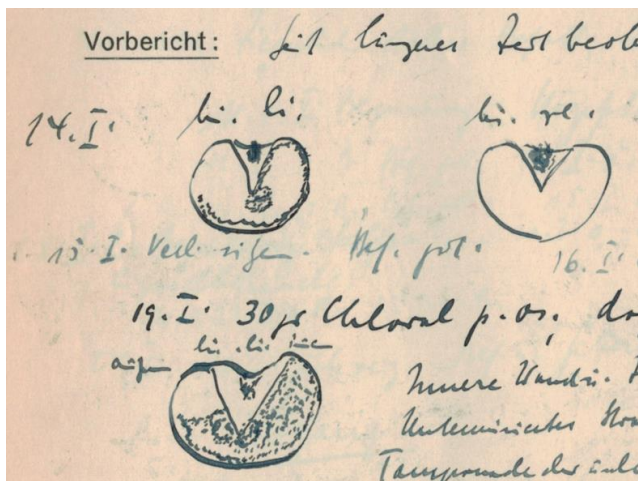 Vorbericht: Seit längerer Zeit beob
14. I. hi. li. hi. re.
15. I. Verl. ruhig. Bef. gut. 16. I.
19. I. 30 gr Chloral p. os.
außen hi. li. innen
Innere Wand
Unterminierter
Tamponade der